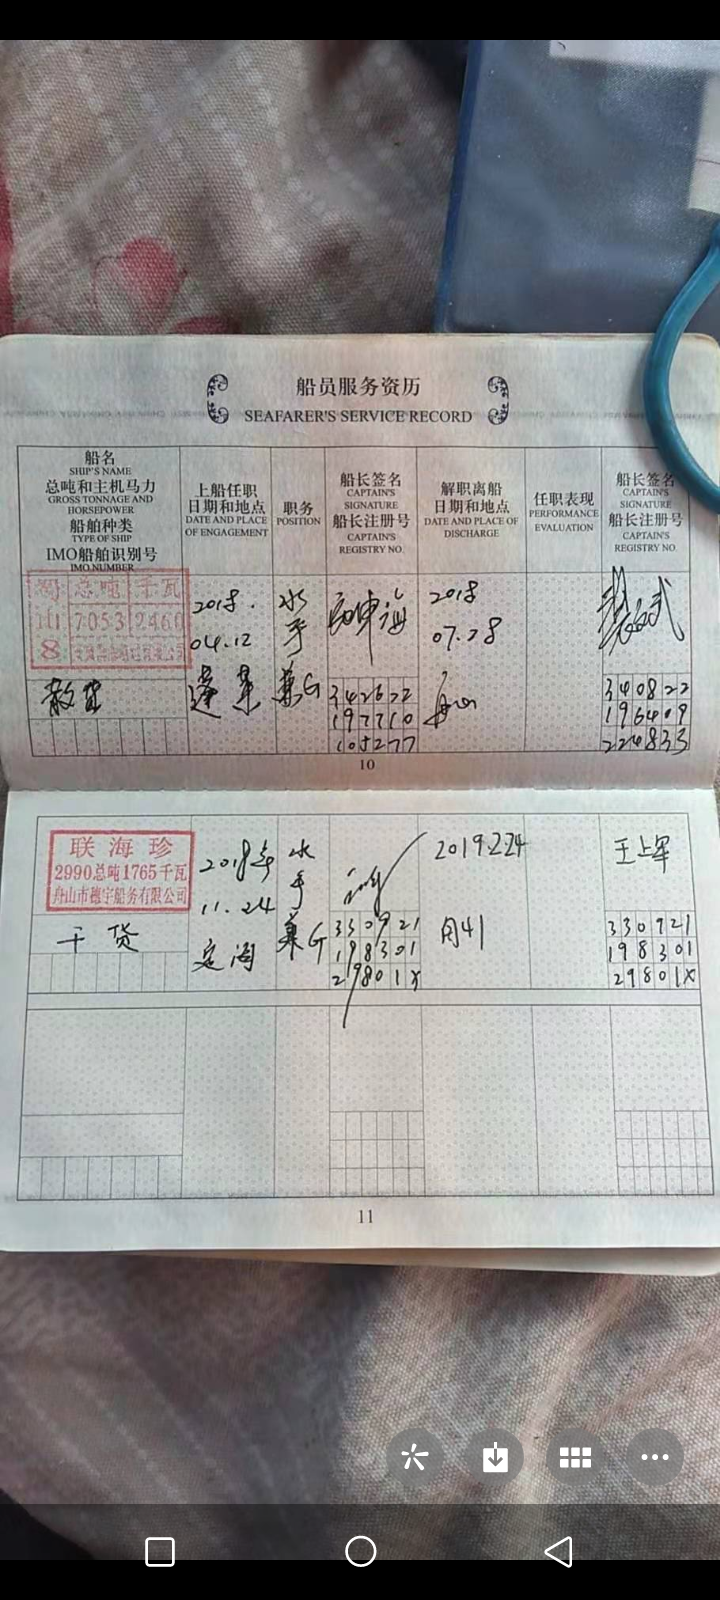 船员服务资历
SEAFARER'S SERVICE RECORD
船名
SHIP'S NAME
总吨和主机马力
GROSS TONNAGE AND
HORSEPOWER
船舶种类
TYPE OF SHIP
IMO船舶识别号
IMO NUMBER
上船任职
日期和地点
DATE AND PLACE
OF ENGAGEMENT
职务
POSITION
船长签名
CAPTAIN'S
SIGNATURE
船长注册号
CAPTAIN'S
REGISTRY NO.
解职离船
日期和地点
DATE AND PLACE OF
DISCHARGE
任职表现
PERFORMANCE
EVALUATION
船长签名
CAPTAIN'S
SIGNATURE
船长注册号
CAPTAIN'S
REGISTRY NO.
总吨 千瓦
7053 2460
8
散货
2018.
04.12
蓬莱
水
手
兼G
342622
197710
105277
2018
07.28
舟山
340822
196409
224833
10
联海珍
2990总吨1765千瓦
舟山市穗宇船务有限公司
干货
2018年
11.24
定海
水
手
兼G
330921
198301
29801X
2019.2.24
王上军
330921
198301
29801X
11